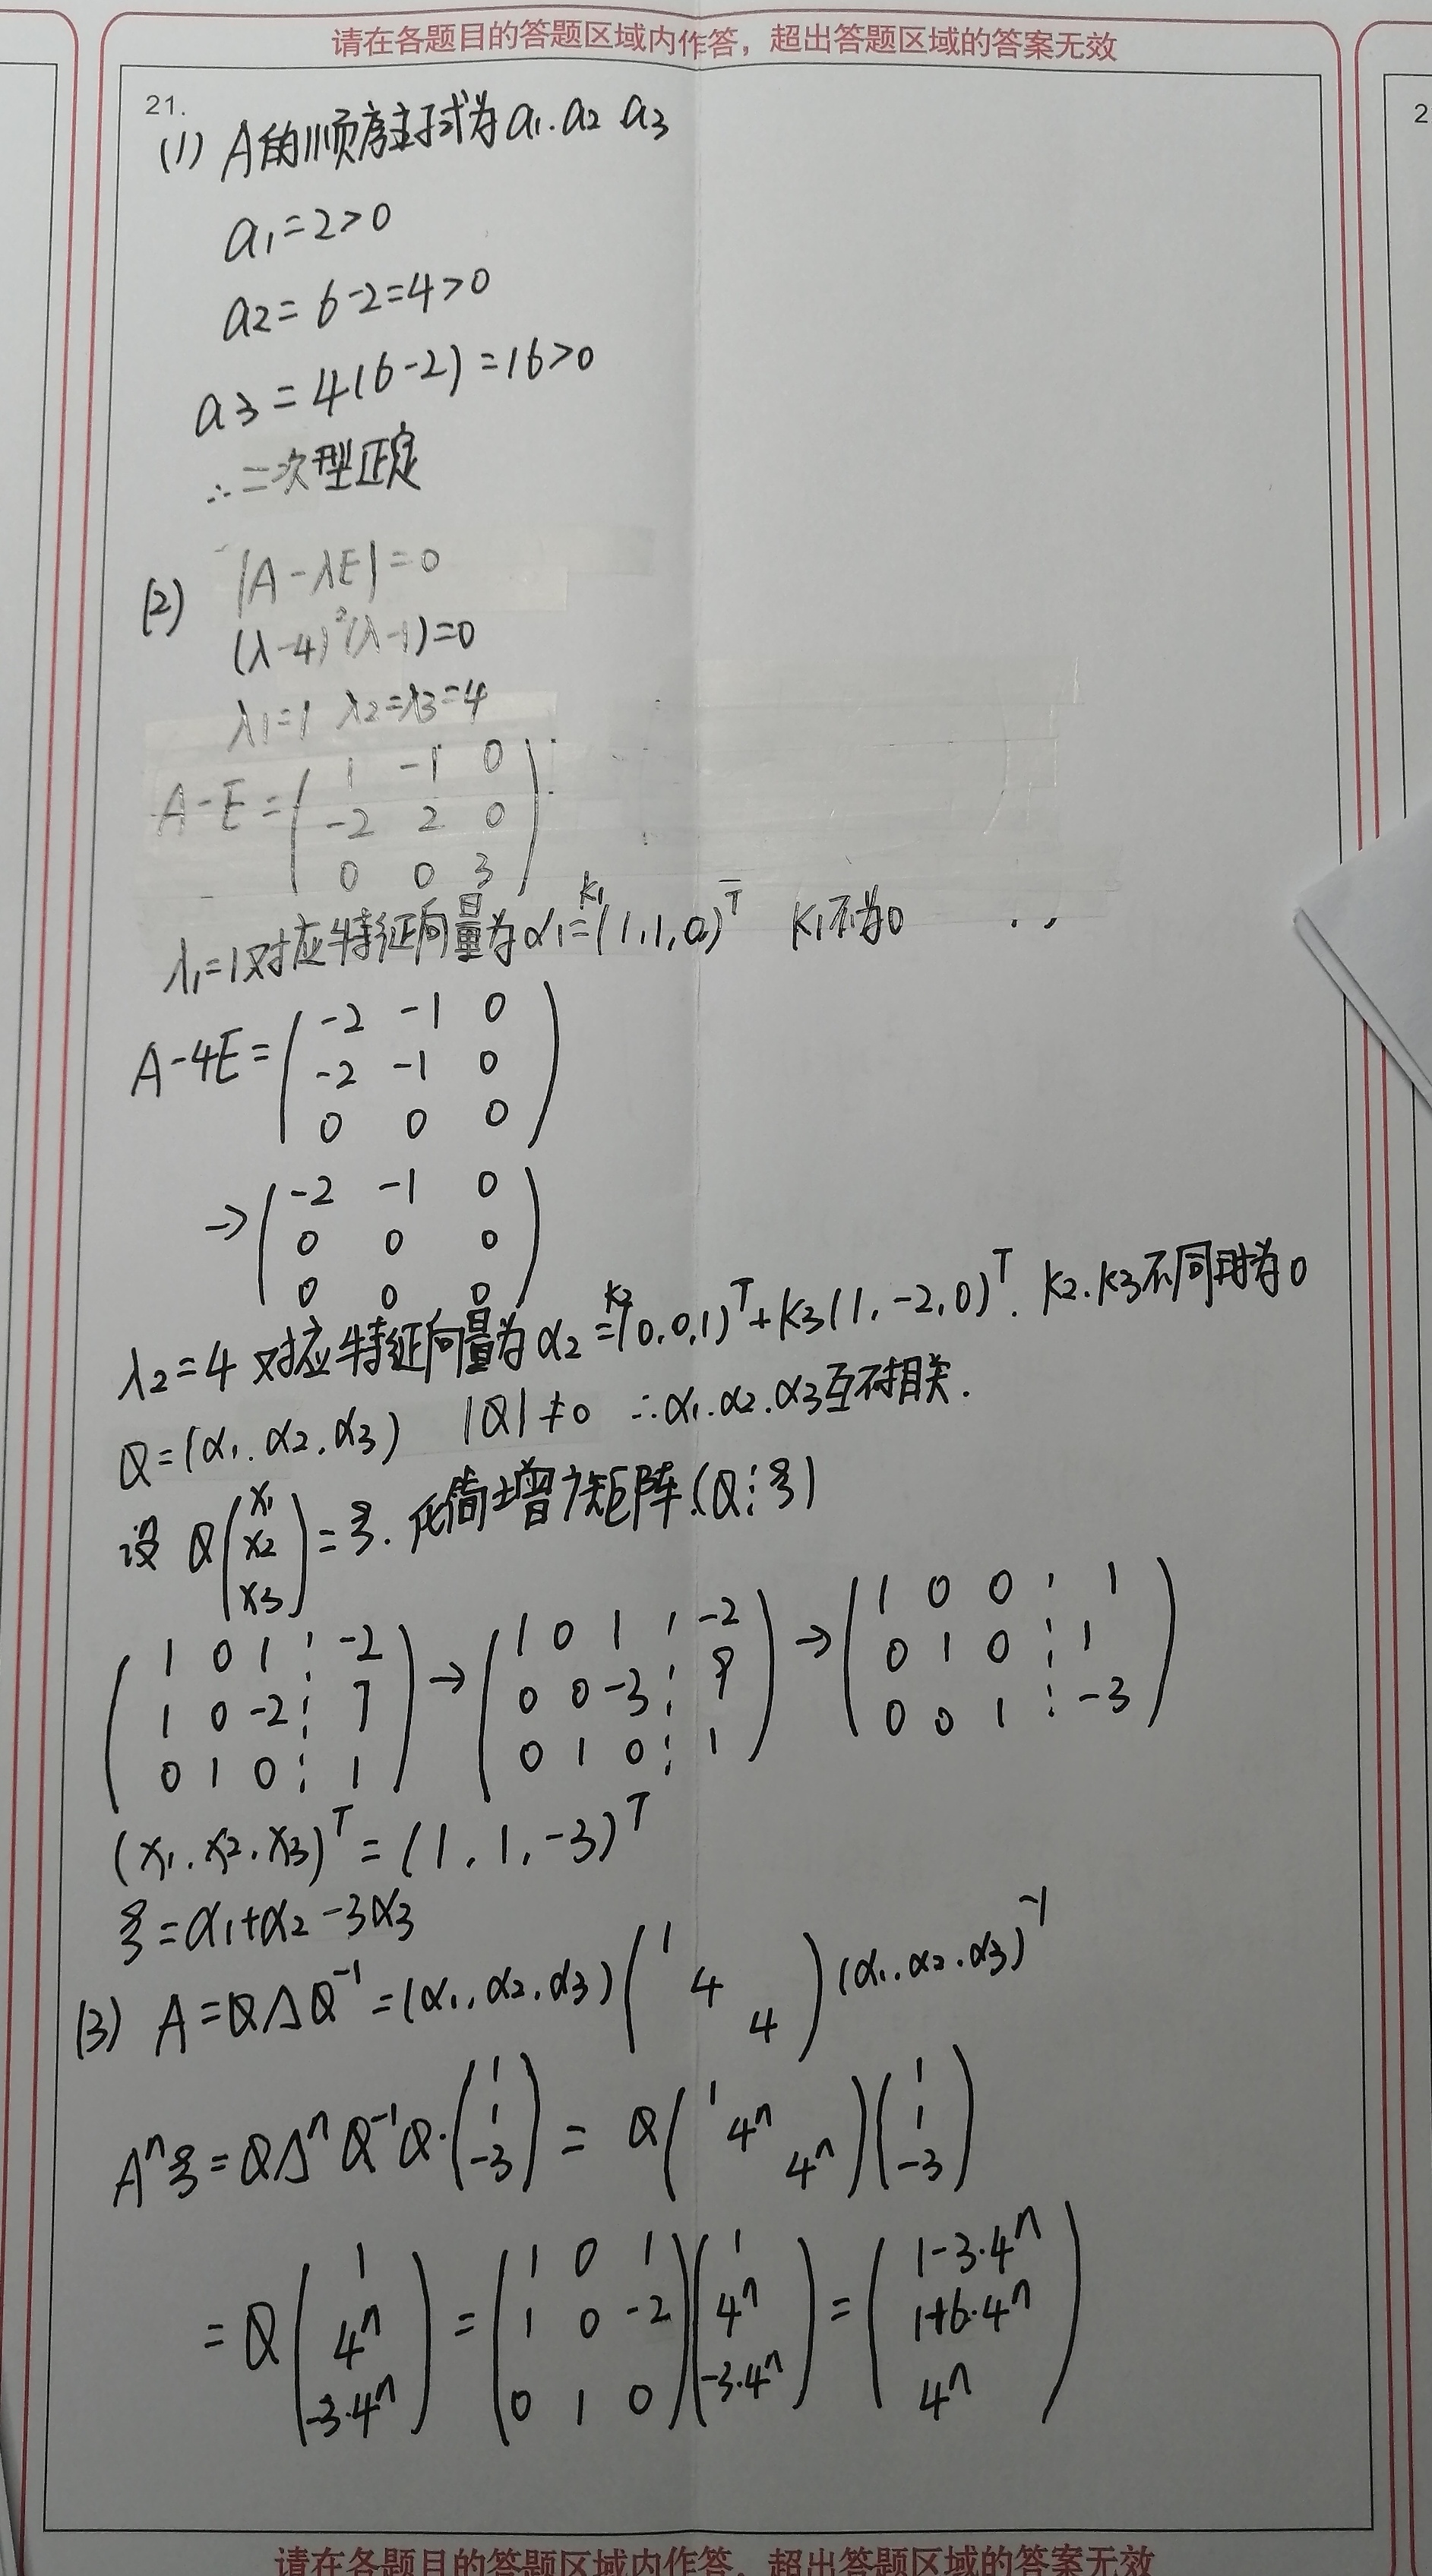 请在各题目的答题区域内作答，超出答题区域的答案无效
21.
2
(1) A的顺序主子式为a₁.a₂ a₃
a₁=2>0
a₂=6-2=4>0
a₃=4(6-2)=16>0
∴二次型正定
(2) |A-λE|=0
(λ-4)²(λ-1)=0
λ₁=1 λ₂=λ₃=4
A-E=( 1 -1 0
-2 2 0
0 0 3 )
λ₁=1对应特征向量为α₁=k₁(1,1,0)ᵀ k₁不为0
A-4E=( -2 -1 0
-2 -1 0
0 0 0 )
→( -2 -1 0
0 0 0
0 0 0 )
λ₂=4 对应特征向量为α₂=k₂(0,0,1)ᵀ+k₃(1,-2,0)ᵀ. k₂.k₃不同时为0
Q=(α₁.α₂.α₃) |Q|≠0 ∴α₁.α₂.α₃互不相关.
设 Q(x₁ x₂ x₃)=ξ. 化简增广矩阵(Q⋮ξ)
( 1 0 1 ⋮ -2 ) → ( 1 0 1 ⋮ -2 ) → ( 1 0 0 ⋮ 1 )
( 1 0 -2 ⋮ 7 ) ( 0 0 -3 ⋮ 9 ) ( 0 1 0 ⋮ 1 )
( 0 1 0 ⋮ 1 ) ( 0 1 0 ⋮ 1 ) ( 0 0 1 ⋮ -3 )
(x₁.x₂.x₃)ᵀ=(1,1,-3)ᵀ
ξ=α₁+α₂-3α₃
(3) A=QΛQ⁻¹=(α₁,α₂,α₃)( 1 4 4 )(α₁.α₂.α₃)⁻¹
Aⁿξ=QΛⁿQ⁻¹Q·( 1 1 -3 ) = Q( 1 4ⁿ 4ⁿ )( 1 1 -3 )
=Q( 1 ) = ( 1 0 1 )( 1 ) = ( 1-3·4ⁿ )
( 4ⁿ ) ( 1 0 -2 )( 4ⁿ ) ( 1+6·4ⁿ )
( -3·4ⁿ ) ( 0 1 0 )( -3·4ⁿ ) ( 4ⁿ )
请在各题目的答题区域内作答，超出答题区域的答案无效